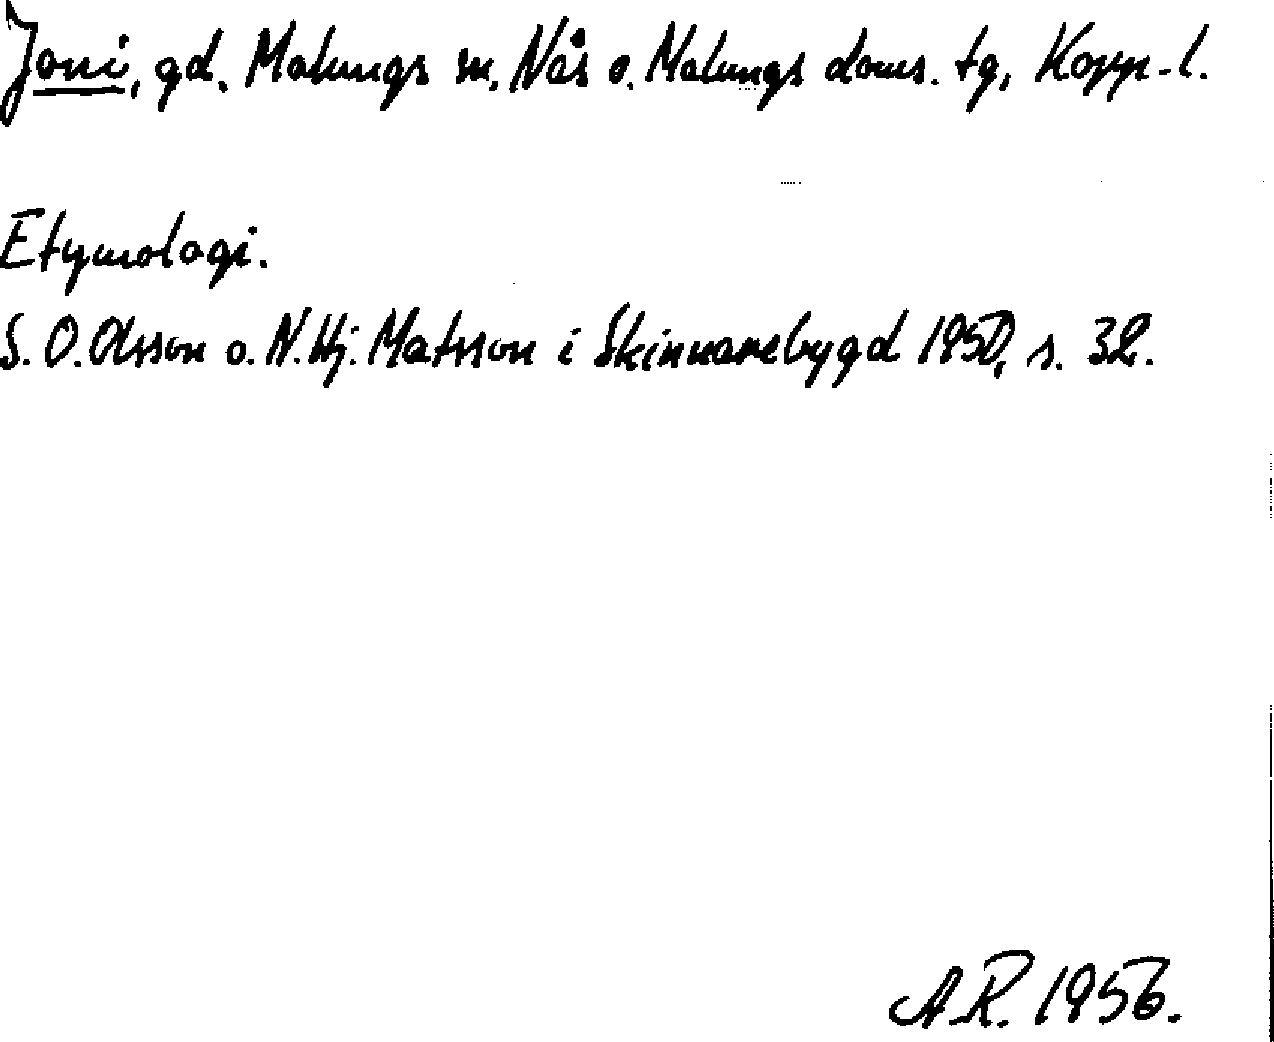 Joni, gd. Malungs sn, Nås o. Malungs doms. tg, Kopp. l.
Etymologi.
S. O. Olsson o. N. Hj. Matsson i Skinnarebygd 1950, s. 32.
A.R. 1956.